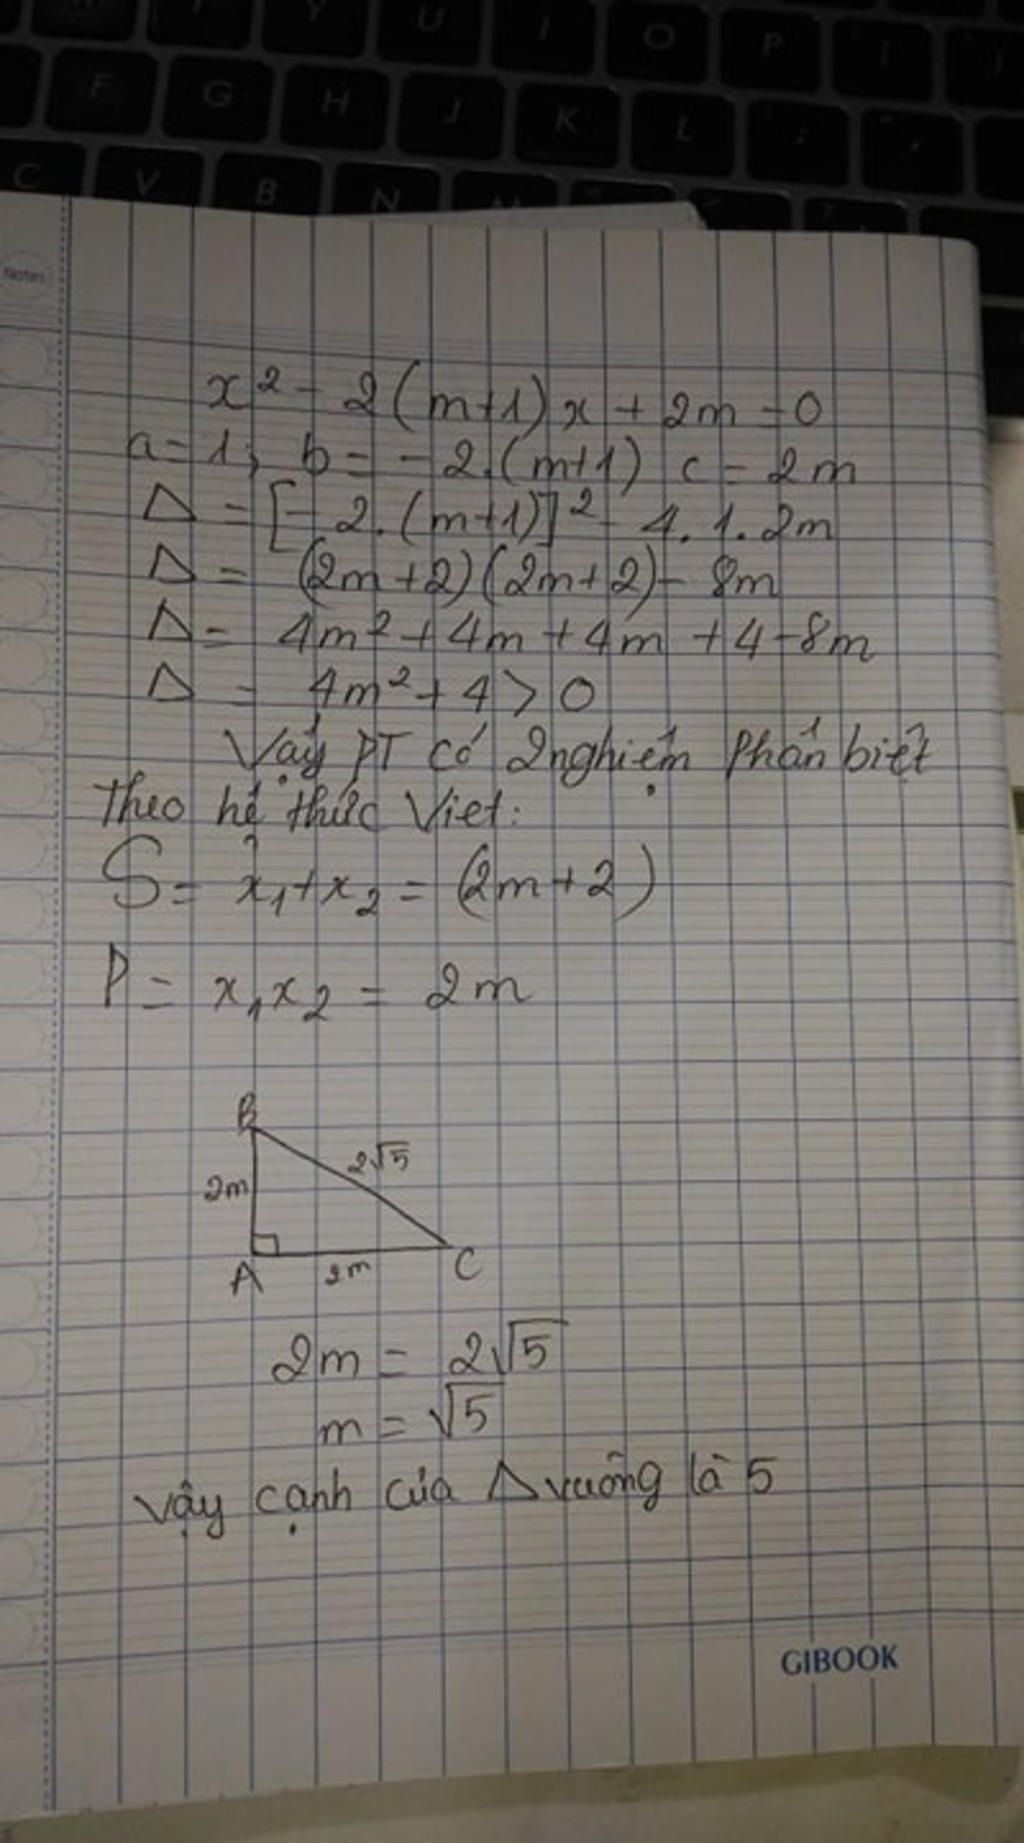 Y U I O P
F G H J K L ;
C V B N M
Notes
x² - 2(m+1)x + 2m = 0
a = 1; b = -2.(m+1) c = 2m
Δ = [-2.(m+1)]² - 4.1.2m
Δ = (2m+2)(2m+2) - 8m
Δ = 4m² + 4m + 4m + 4 - 8m
Δ = 4m² + 4 > 0
Vậy PT có 2 nghiệm phân biệt
Theo hệ thức Viet:
S = x₁+x₂ = (2m+2)
P = x₁x₂ = 2m
B
2√5
2m
A 2m C
2m = 2√5
m = √5
Vậy cạnh của Δ vuông là 5
GIBOOK